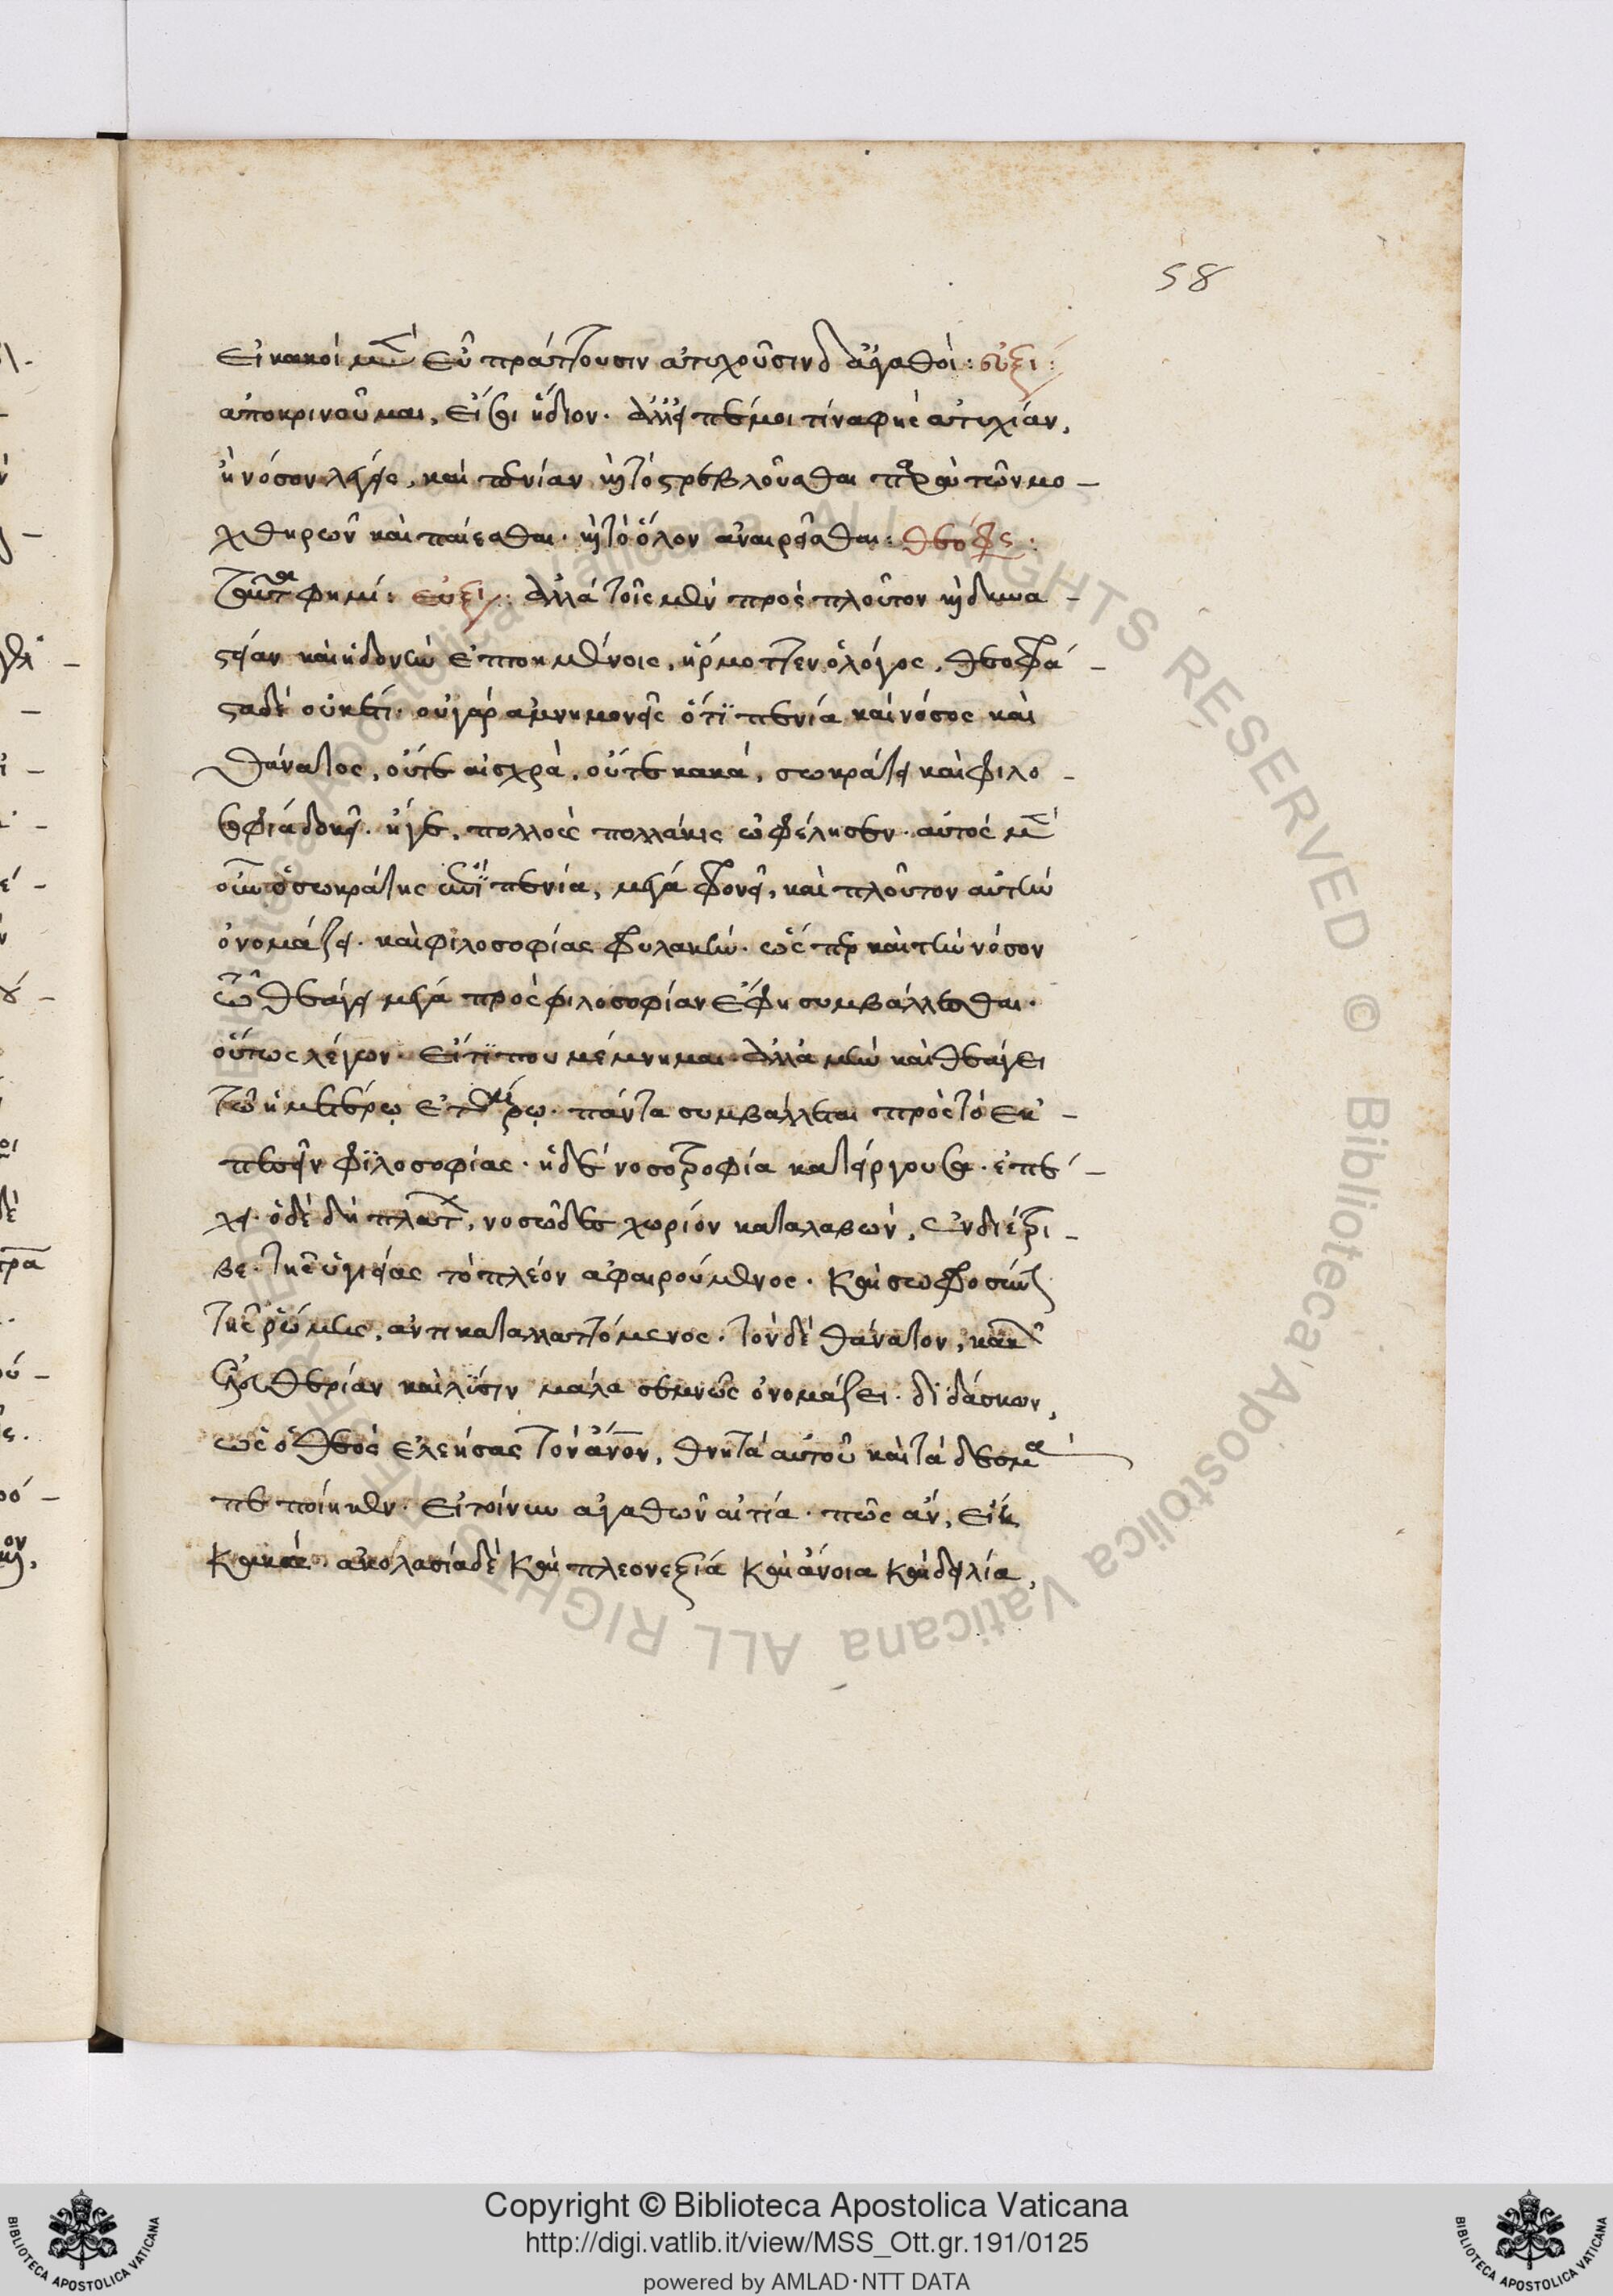 58
εἰ κακοί μὲν εὖ πράττουσιν ἀτυχοῦσιν δ ἀγαθοί : εὐξί :
ἀποκρινοῦμαι, εἴσῃ ἥδιον. ἀλλ' εἰπέ μοι τίνα φῂς ἀτυχίαν,
ἢ νόσον λέγεις, καὶ πενίαν καὶ τὸ στρεβλοῦσθαι παρὰ τῶν μο-
χθηρῶν καὶ παίεσθαι. καὶ τὸ ὅλον ἀναιρεῖσθαι : θεόφς :
ταῦτα φημί : εὐξι : ἀλλὰ τοῖς μὲν πρὸς πλοῦτον καὶ δυνα-
στείαν καὶ ἡδονὴν ἐπτοημένοις, ἥρμοττεν ὁ λόγος, θεοφρά-
στα δὲ οὐκέτι. οὐ γὰρ ἀμνημονεῖς ὅτι πενία καὶ νόσος καὶ
θάνατος, οὔτε αἰσχρὰ, οὔτε κακά, σωκράτει καὶ φιλο-
σοφίᾳ δοκεῖ. εἴγε, πολλοὺς πολλάκις ὠφέλησεν. αὐτὸς μὲν
οὖν ὁ σωκράτης ἐπὶ πενία, μέγα φρονεῖ, καὶ πλοῦτον αὐτὴν
ὀνομάζει. καὶ φιλοσοφίας φυλακὴν. ὥς περ καὶ τὴν νόσον
τῶ θεάγει μέγα πρὸς φιλοσοφίαν ἔφη συμβάλλεσθαι.
οὕτως λέγων. εἴ τι που μέμνημαι. ἀλλὰ μὴν καὶ θεάγει
τῶ ἡμετέρῳ ἑταίρῳ. πάντα συμβάλλεται πρὸς τὸ ἐκ-
πεσεῖν φιλοσοφίας. ἡ δέ νοσοτροφία κατείργουσα. ἐπέ-
χει. ὁ δὲ δὴ πλάτων, νοσῶδες χωρίον καταλαβὼν, ἐνδιέτρι-
βε. τῆς ὑγιείας τὸ πλέον ἀφαιρούμενος. καὶ σωφροσύνην
τῆς ῥώμης, ἀντικαταλλαττόμενος. τὸν δὲ θάνατον, κἀκεῖνος
ἐλευθερίαν καὶ λύσιν μάλα σεμνῶς ὀνομάζει. διδάσκων,
ὡς ὁ θεὸς ἐλεήσας τὸν ἄνον, θνητὰ αὐτοῦ καὶ τὰ δεσμὰ
πεποίηκεν. εἰ τοίνυν ἀγαθῶν αἰτία. πῶς ἂν, εἴη
κακά. ἀκολασία δὲ καὶ πλεονεξία καὶ ἄνοια καὶ δειλία,
Copyright © Biblioteca Apostolica Vaticana
http://digi.vatlib.it/view/MSS_Ott.gr.191/0125
powered by AMLAD·NTT DATA